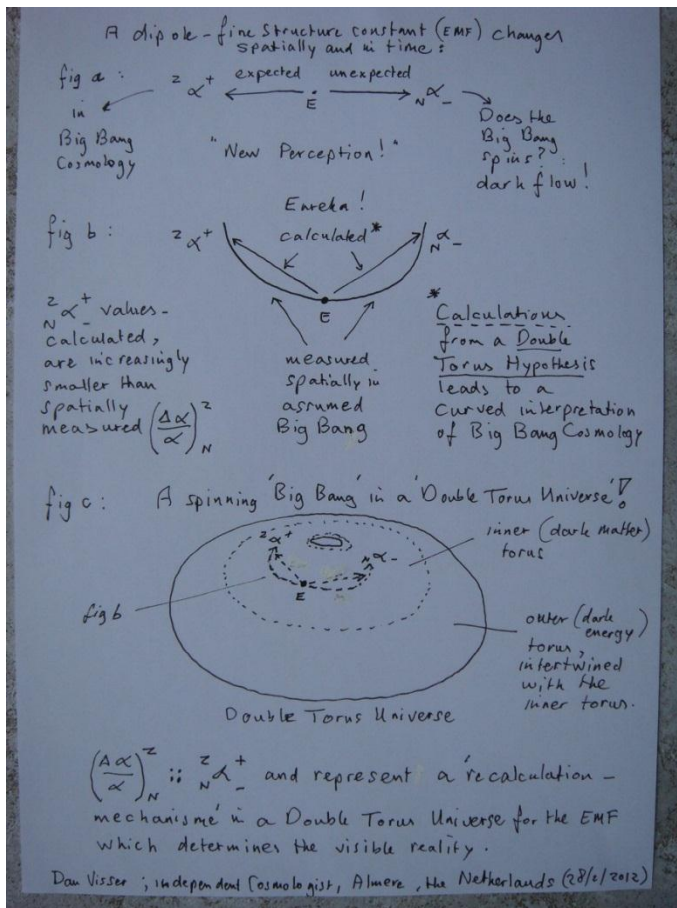 A dipole-fine structure constant (EMF) changes
spatially and in time:
fig a: ᶻα⁺ expected unexpected ₙα₋
E
in
Big Bang
Cosmology
"New Perception!"
Does the
Big Bang
spins?:
dark flow!
Eureka!
fig b: ᶻα⁺ calculated* ₙα₋
E
ᶻₙα⁺₋ values-
calculated,
are increasingly
smaller than
spatially
measured (Δα/α)ᶻₙ
measured
spatially in
assumed
Big Bang
* Calculations
from a Double
Torus Hypothesis
leads to a
curved interpretation
of Big Bang Cosmology
fig c: A spinning 'Big Bang' in a 'Double Torus Universe'!
ᶻα⁺ ₙα₋
E
fig b
inner (dark matter)
torus
outer (dark
energy)
torus,
intertwined
with the
inner torus.
Double Torus Universe
(Δα/α)ᶻₙ :: ᶻₙα⁺₋ and represent a 'recalculation-
mechanisme' in a Double Torus Universe for the EMF
which determines the visible reality.
Dan Visser; independent Cosmologist, Almere, the Netherlands (28/2/2012)